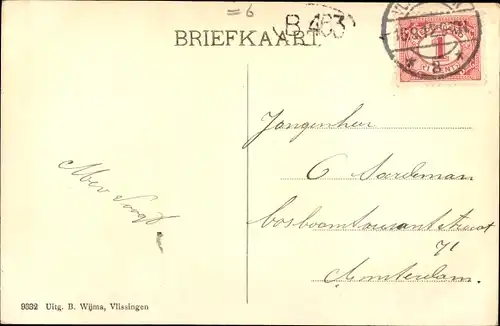 =6
B 463
BRIEFKAART.
1
Jongenheer
G Sardeman
bosboomtoussantstraat
71
Amsterdam.
9332 Uitg. B. Wijma, Vlissingen